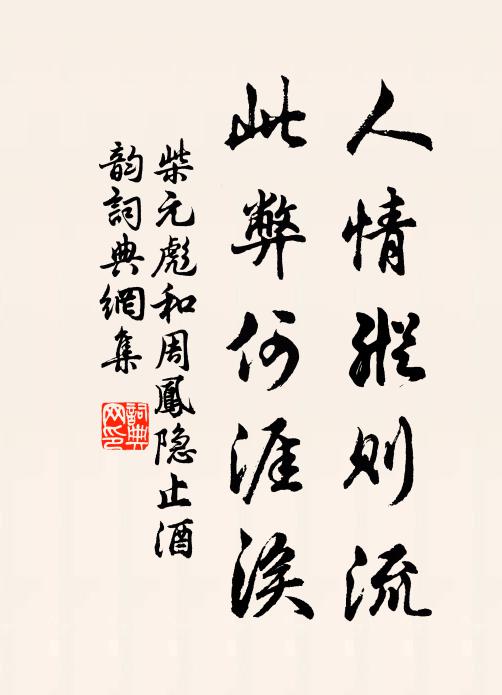 人情縱則流
此弊何涯涘
柴元彪和周鳳隐止酒
韵詞典網集
詞典
网印